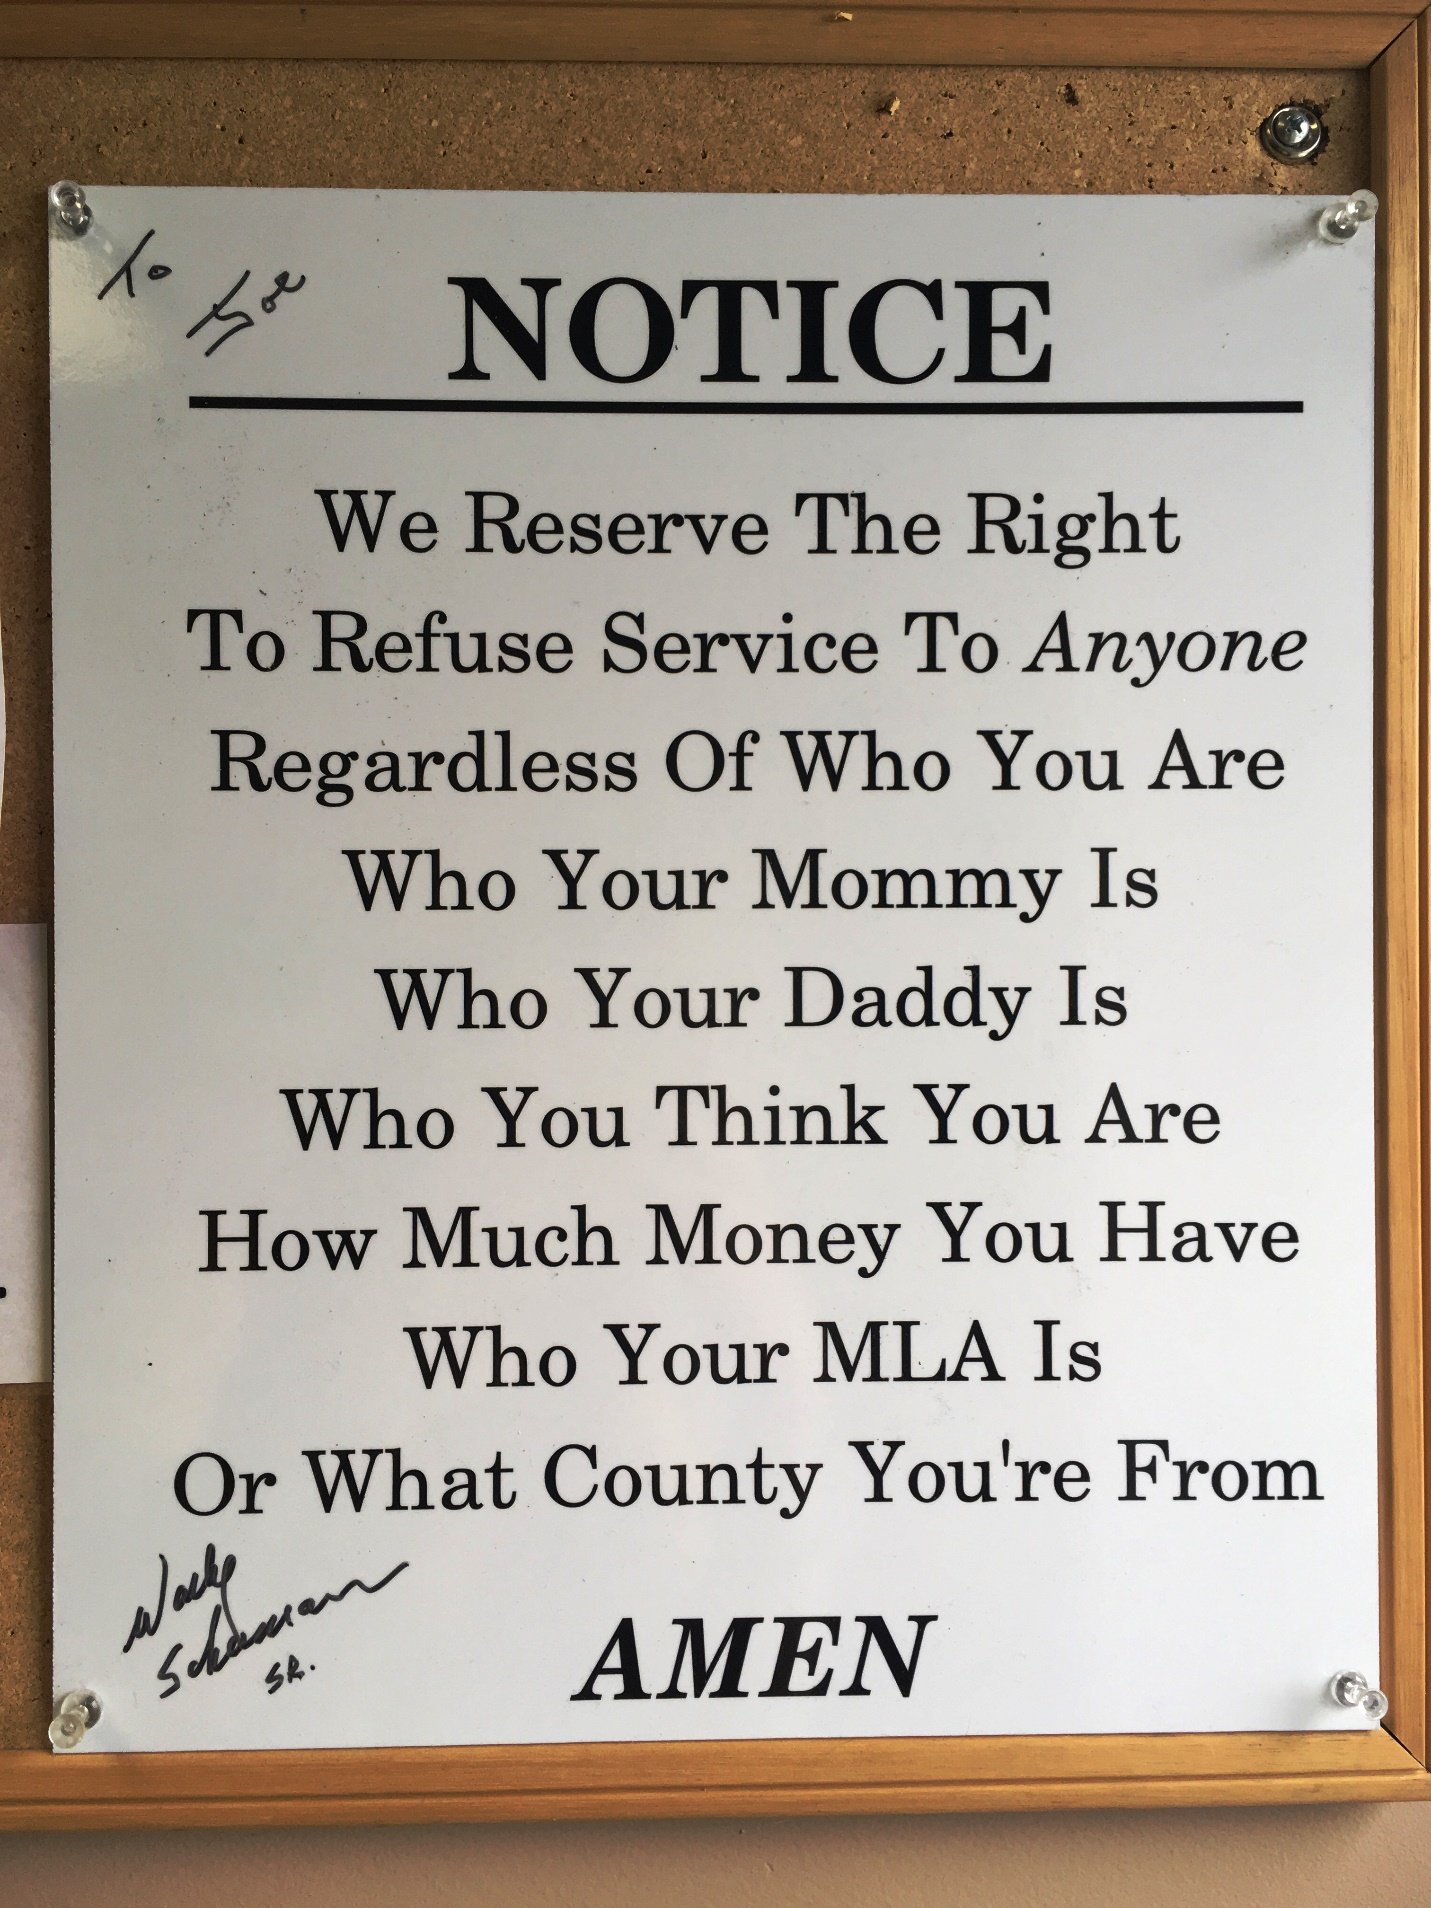 To Joe
NOTICE
We Reserve The Right
To Refuse Service To Anyone
Regardless Of Who You Are
Who Your Mommy Is
Who Your Daddy Is
Who You Think You Are
How Much Money You Have
Who Your MLA Is
Or What County You're From
SR.
AMEN